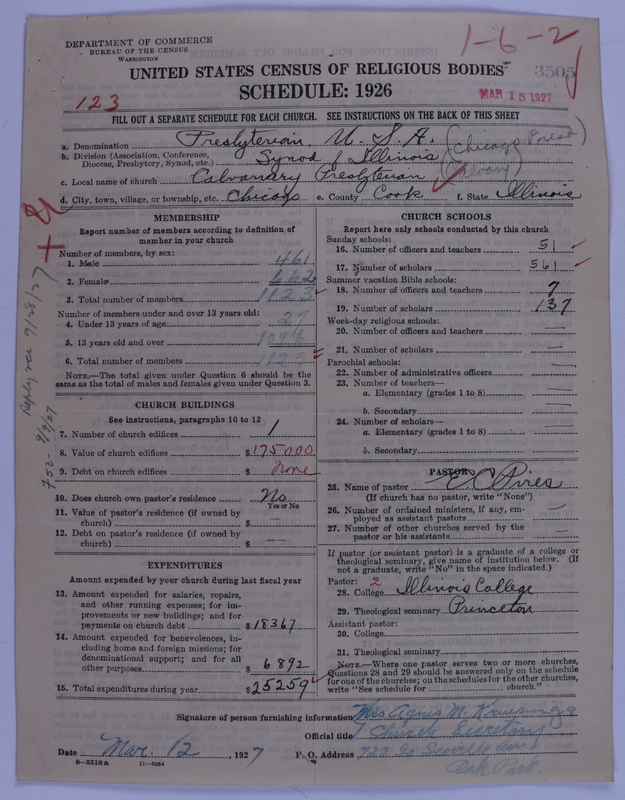 DEPARTMENT OF COMMERCE
BUREAU OF THE CENSUS
WASHINGTON
1-6-2
UNITED STATES CENSUS OF RELIGIOUS BODIES
3505
SCHEDULE: 1926
123
MAR 15 1927
FILL OUT A SEPARATE SCHEDULE FOR EACH CHURCH. SEE INSTRUCTIONS ON THE BACK OF THIS SHEET
a. Denomination Presbyterian U. S. A. (Chicago Presb)
b. Division (Association, Conference, Diocese, Presbytery, Synod, etc.) Synod of Illinois
c. Local name of church Calvanary Presbyterian (Calvary)
d. City, town, village, or township, etc. Chicago e. County Cook f. State Illinois
MEMBERSHIP
Report number of members according to definition of
member in your church
Number of members, by sex:
1. Male 461
2. Female 662
3. Total number of members 1123
Number of members under and over 13 years old:
4. Under 13 years of age 27
5. 13 years old and over 1096
6. Total number of members 1123
NOTE.—The total given under Question 6 should be the
same as the total of males and females given under Question 3.
CHURCH BUILDINGS
See instructions, paragraphs 10 to 12
7. Number of church edifices 1
8. Value of church edifices $175000
9. Debt on church edifices $None
10. Does church own pastor's residence No
Yes or No
11. Value of pastor's residence (if owned by
church) $ —
12. Debt on pastor's residence (if owned by
church) $ —
EXPENDITURES
Amount expended by your church during last fiscal year
13. Amount expended for salaries, repairs,
and other running expenses; for im-
provements or new buildings; and for
payments on church debt $18367
14. Amount expended for benevolences, in-
cluding home and foreign missions; for
denominational support; and for all
other purposes $6892
15. Total expenditures during year $25259
CHURCH SCHOOLS
Report here only schools conducted by this church
Sunday schools:
16. Number of officers and teachers 51
17. Number of scholars 561
Summer vacation Bible schools:
18. Number of officers and teachers 7
19. Number of scholars 137
Week-day religious schools:
20. Number of officers and teachers —
21. Number of scholars —
Parochial schools:
22. Number of administrative officers —
23. Number of teachers—
a. Elementary (grades 1 to 8) —
b. Secondary —
24. Number of scholars—
a. Elementary (grades 1 to 8) —
b. Secondary —
PASTOR
25. Name of pastor E. C. Pires
(If church has no pastor, write "None")
26. Number of ordained ministers, if any, em-
ployed as assistant pastors —
27. Number of other churches served by the
pastor or his assistants —
If pastor (or assistant pastor) is a graduate of a college or
theological seminary, give name of institution below. (If
not a graduate, write "No" in the space indicated.)
Pastor: 2
28. College Illinois College
29. Theological seminary Princeton
Assistant pastor:
30. College
31. Theological seminary
NOTE.—Where one pastor serves two or more churches,
Questions 28 and 29 should be answered only on the schedule
for one of the churches; on the schedules for the other churches,
write "See schedule for church."
Signature of person furnishing information Mrs Agnes M.
Official title Church Secretary
Date Mar. 12, 1927 P. O. Address
Oak Park.
8-5518a 11-9054
Reply rec 9/28/27